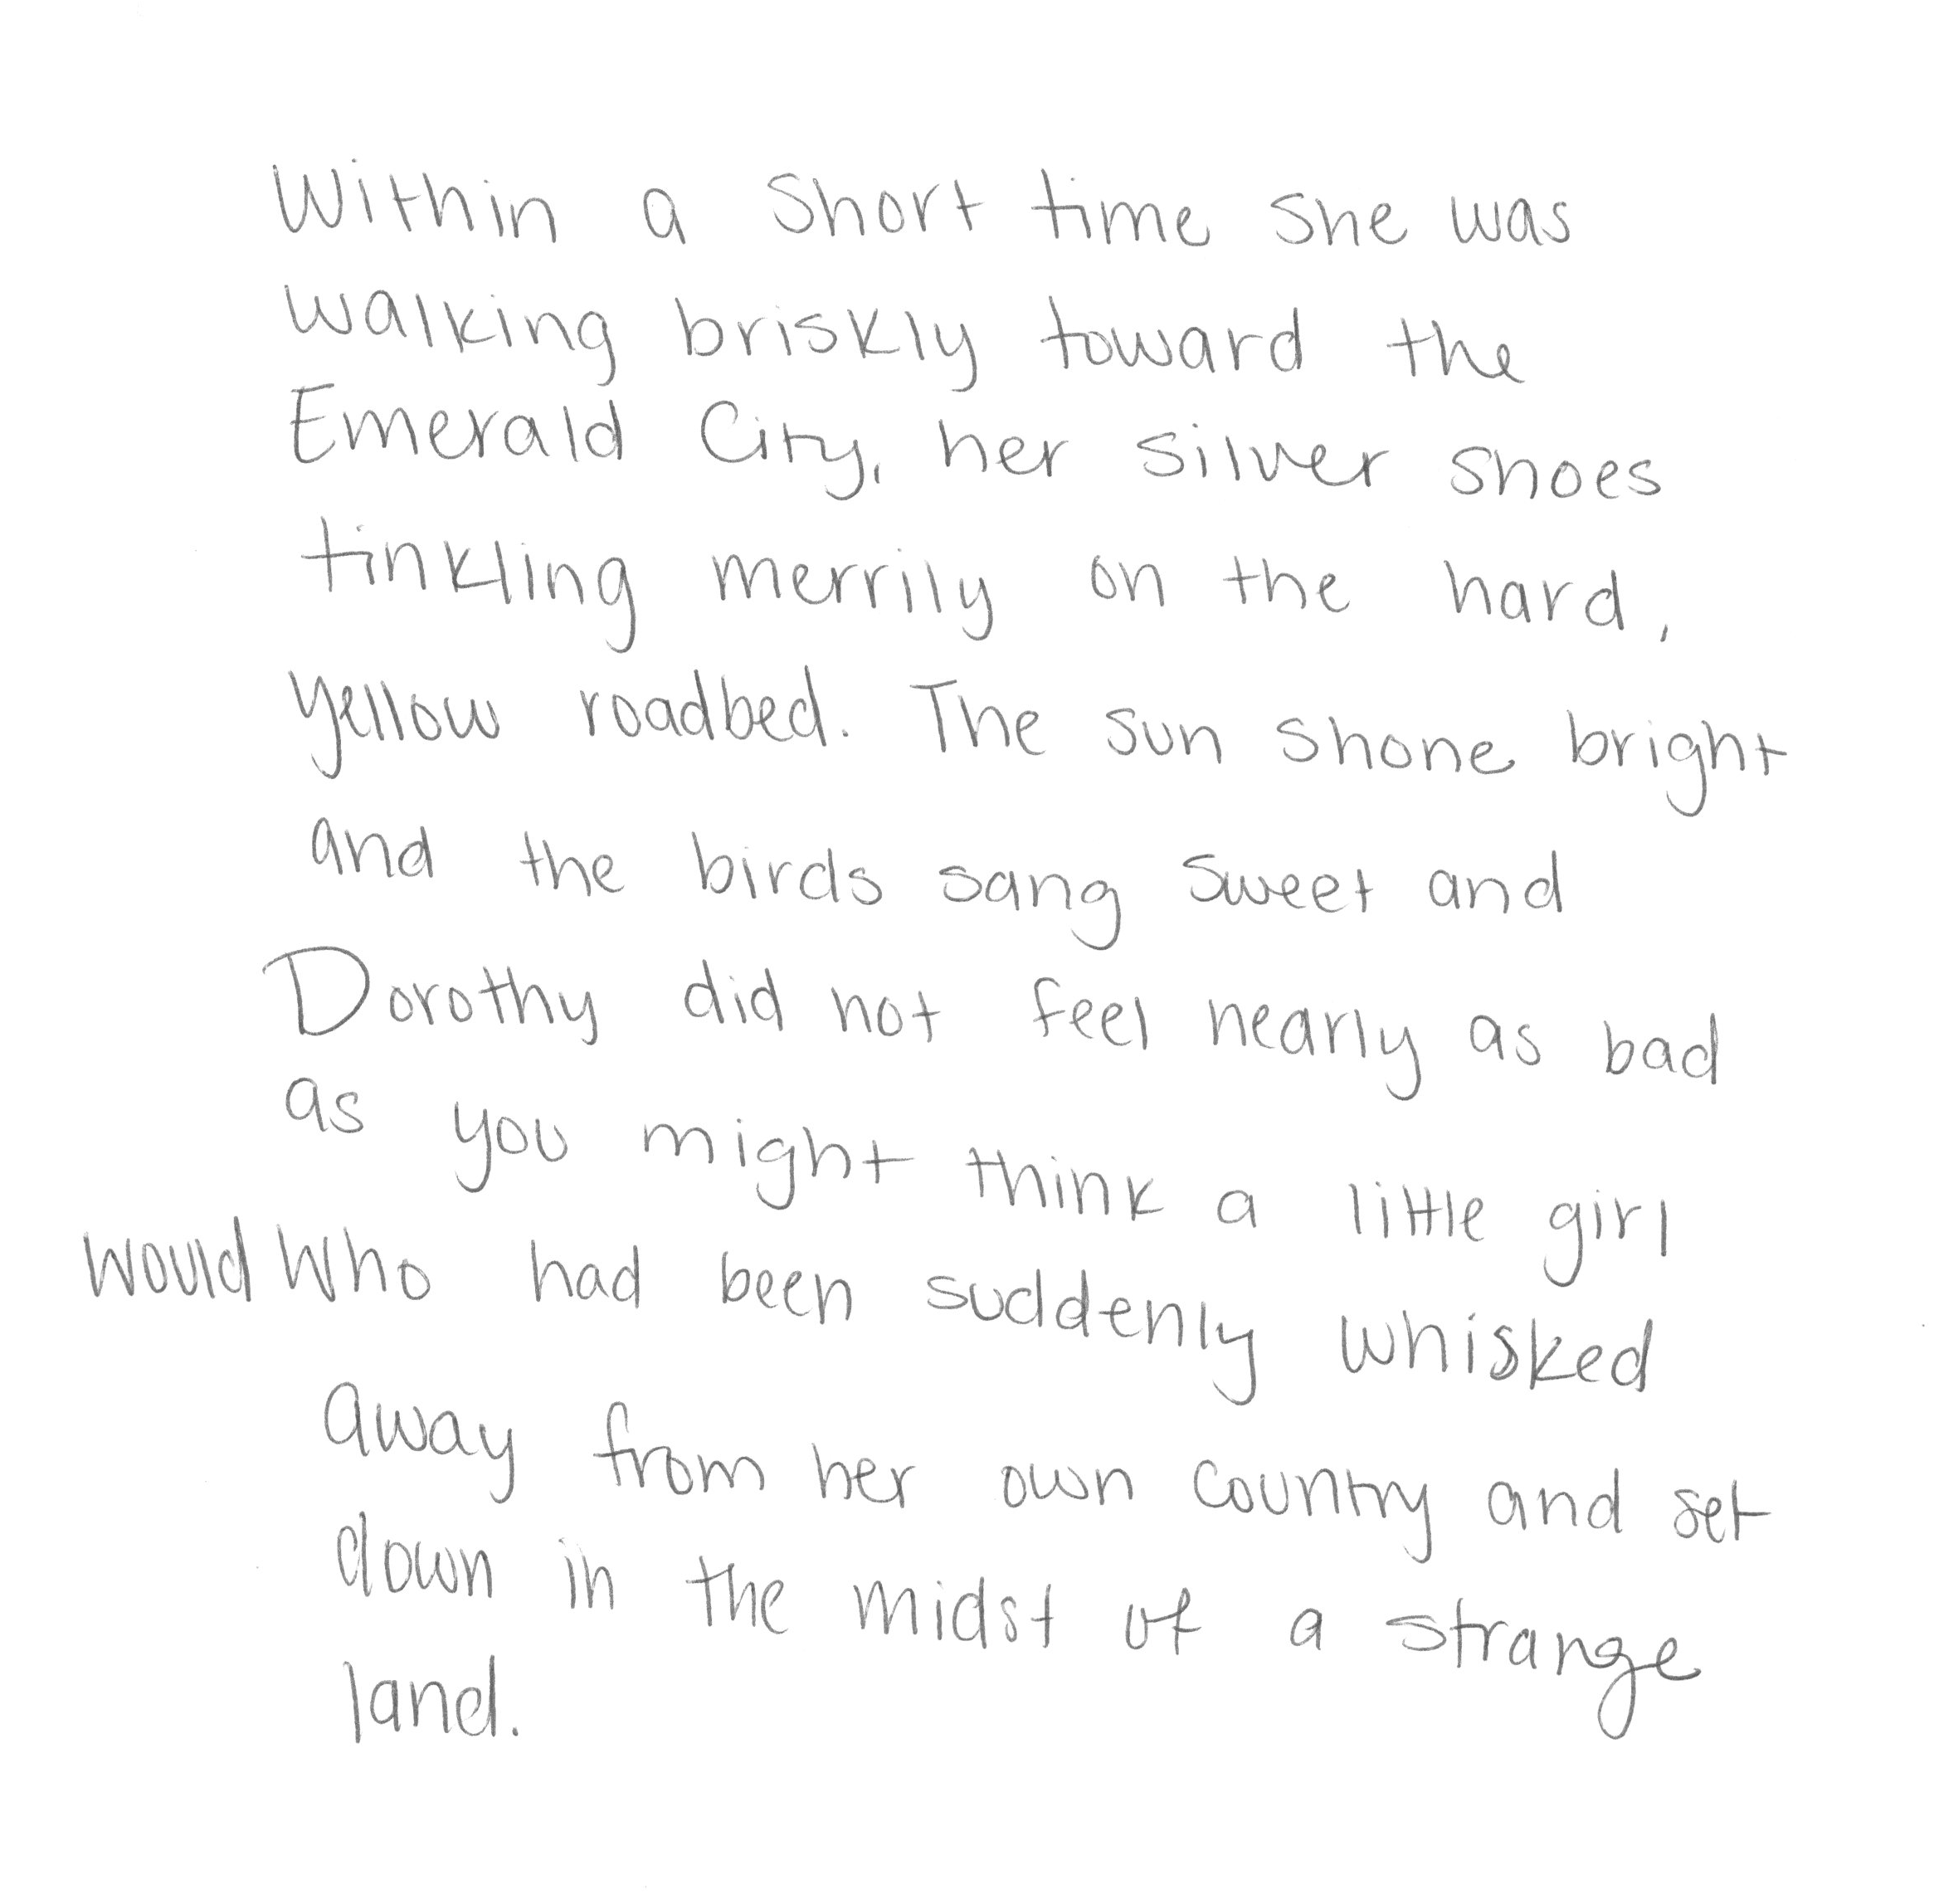 Within a short time she was
walking briskly toward the
Emerald City, her silver shoes
tinkling merrily on the hard,
yellow roadbed. The sun shone bright
and the birds sang sweet and
Dorothy did not feel nearly as bad
as you might think a little girl
would who had been suddenly whisked
away from her own country and set
down in the midst of a strange
land.